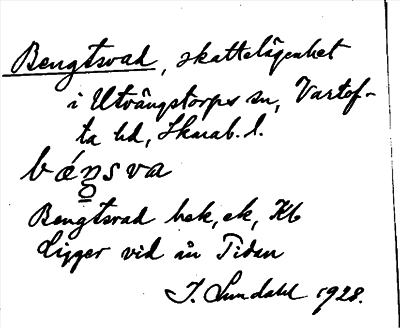 Bengtsvad, skattelägenhet
i Utvängstorps sn, Vartof-
ta hd, Skarab. l.
bá́ŋsva
Bengtsvad hek, ek, Kb
Ligger vid ån Tidan
I. Lundahl 1928.